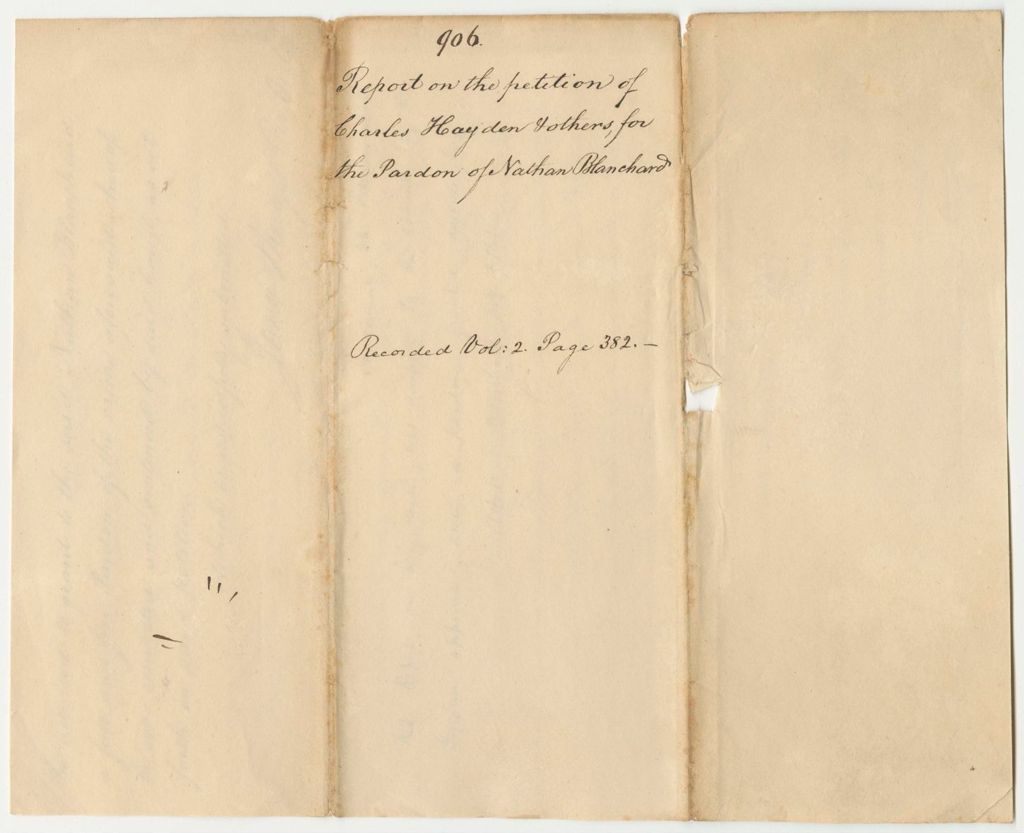 906.
Report on the petition of
Charles Hayden & others, for
the Pardon of Nathan Blanchard
Recorded Vol: 2. Page 382. —